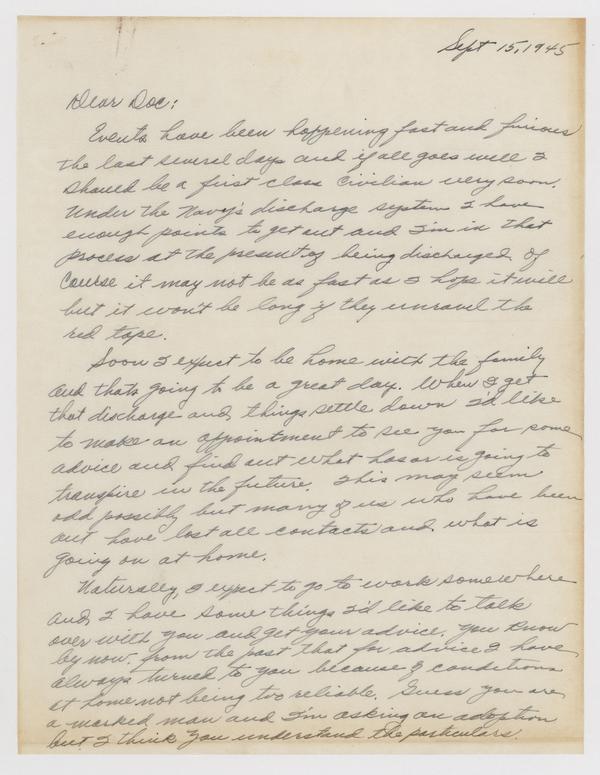 Sept 15, 1945
Dear Doc:
Events have been happening fast and furious
the last several days and if all goes well I
should be a first class Civilian very soon.
Under the Navy's discharge system I have
enough points to get out and I'm in that
process at the present of being discharged. Of
course it may not be as fast as I hope it will
but it won't be long if they unravel the
red tape.
Soon I expect to be home with the family
and thats going to be a great day. When I get
that discharge and things settle down I'd like
to make an appointment to see you for some
advice and find out what has or is going to
transpire in the future. This may seem
odd possibly but many of us who have been
out have lost all contacts and what is
going on at home.
Naturally, I expect to go to work somewhere
and I have some things I'd like to talk
over with you and get your advice. You know
by now from the past that for advice I have
always turned to you because of conditions
at home not being too reliable. Guess you are
a marked man and I'm asking an adoption
but I think you understand the particulars.